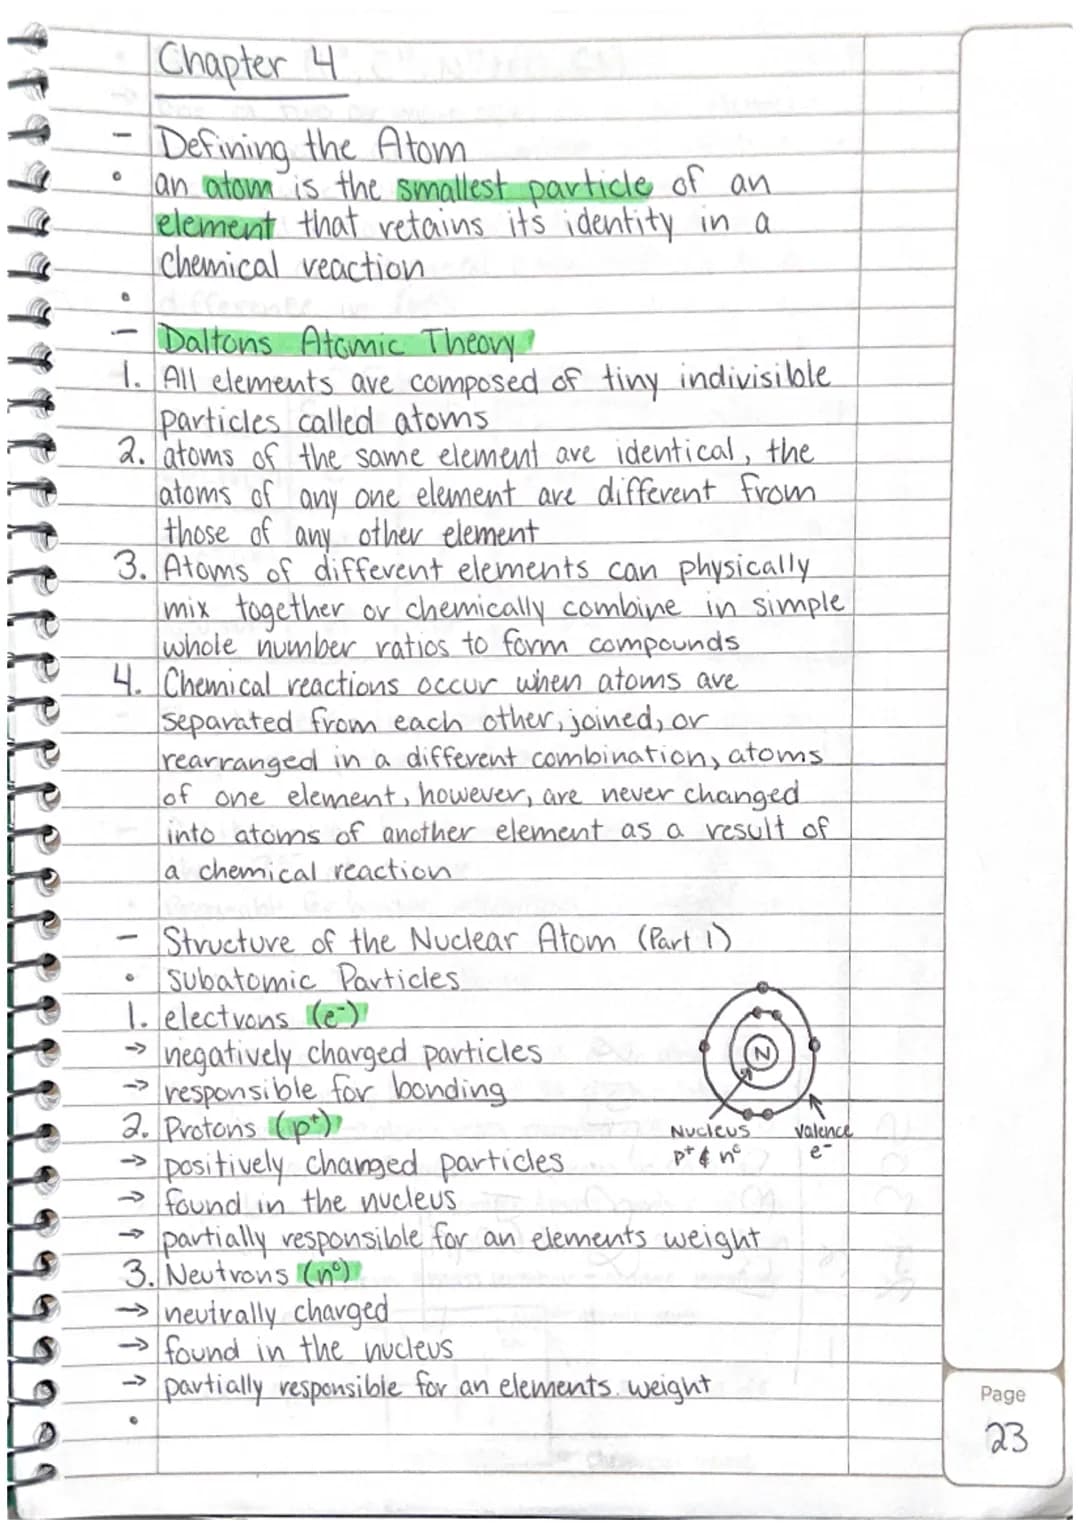 Chapter 4
- Defining the Atom
• an atom is the smallest particle of an
element that retains its identity in a
chemical reaction
•
- Daltons Atomic Theory
1. All elements are composed of tiny indivisible
particles called atoms
2. atoms of the same element are identical, the
atoms of any one element are different from
those of any other element
3. Atoms of different elements can physically
mix together or chemically combine in simple
whole number ratios to form compounds
4. Chemical reactions occur when atoms are
separated from each other, joined, or
rearranged in a different combination, atoms
of one element, however, are never changed
into atoms of another element as a result of
a chemical reaction
- Structure of the Nuclear Atom (Part 1)
• Subatomic Particles
1. electrons (e⁻)
→ negatively charged particles
→ responsible for bonding
2. Protons (p⁺)
→ positively changed particles
→ found in the nucleus
→ partially responsible for an elements weight
3. Neutrons (n⁰)
→ neutrally charged
→ found in the nucleus
→ partially responsible for an elements weight
•
N
Nucleus
p⁺ & n⁰
Valence
e⁻
Page
23